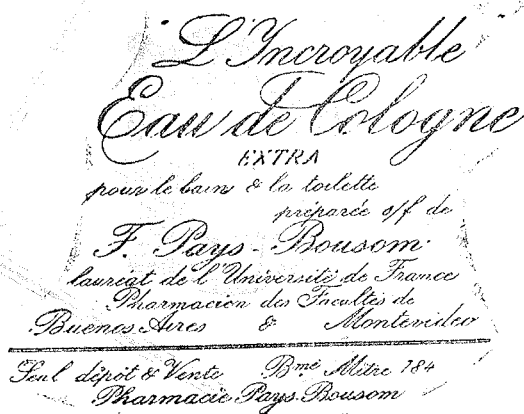 "L'Incroyable"
Eau de Cologne
EXTRA
pour le bain & la toilette
préparée s/f de
F. Pays-Bousom.
lauréat de l'Université de France
Pharmacien des Facultés de
Buenos Aires & Montevideo
Seul dépôt & Vente Bmé Mitre 184
Pharmacie Pays-Bousom